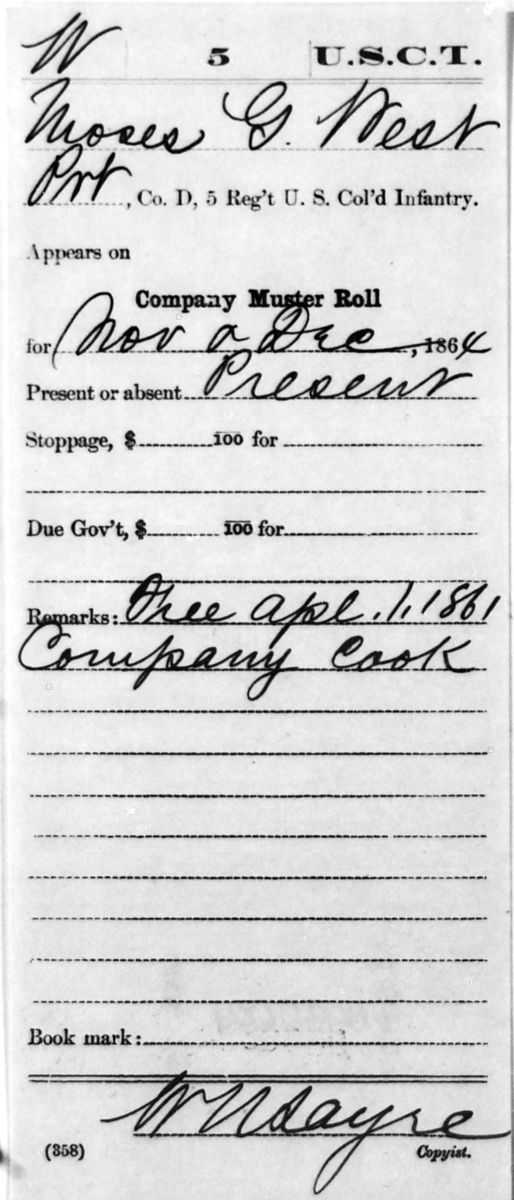 W 5 U.S.C.T.
Moses G. West
Prt, Co. D, 5 Reg't U. S. Col'd Infantry.
Appears on
Company Muster Roll
for Nov & Dec, 1864
Present or absent Present
Stoppage, $ 100 for
Due Gov't, $ 100 for
Remarks: Free Apl. 1, 1861
Company Cook
Book mark:
(358) Copyist.